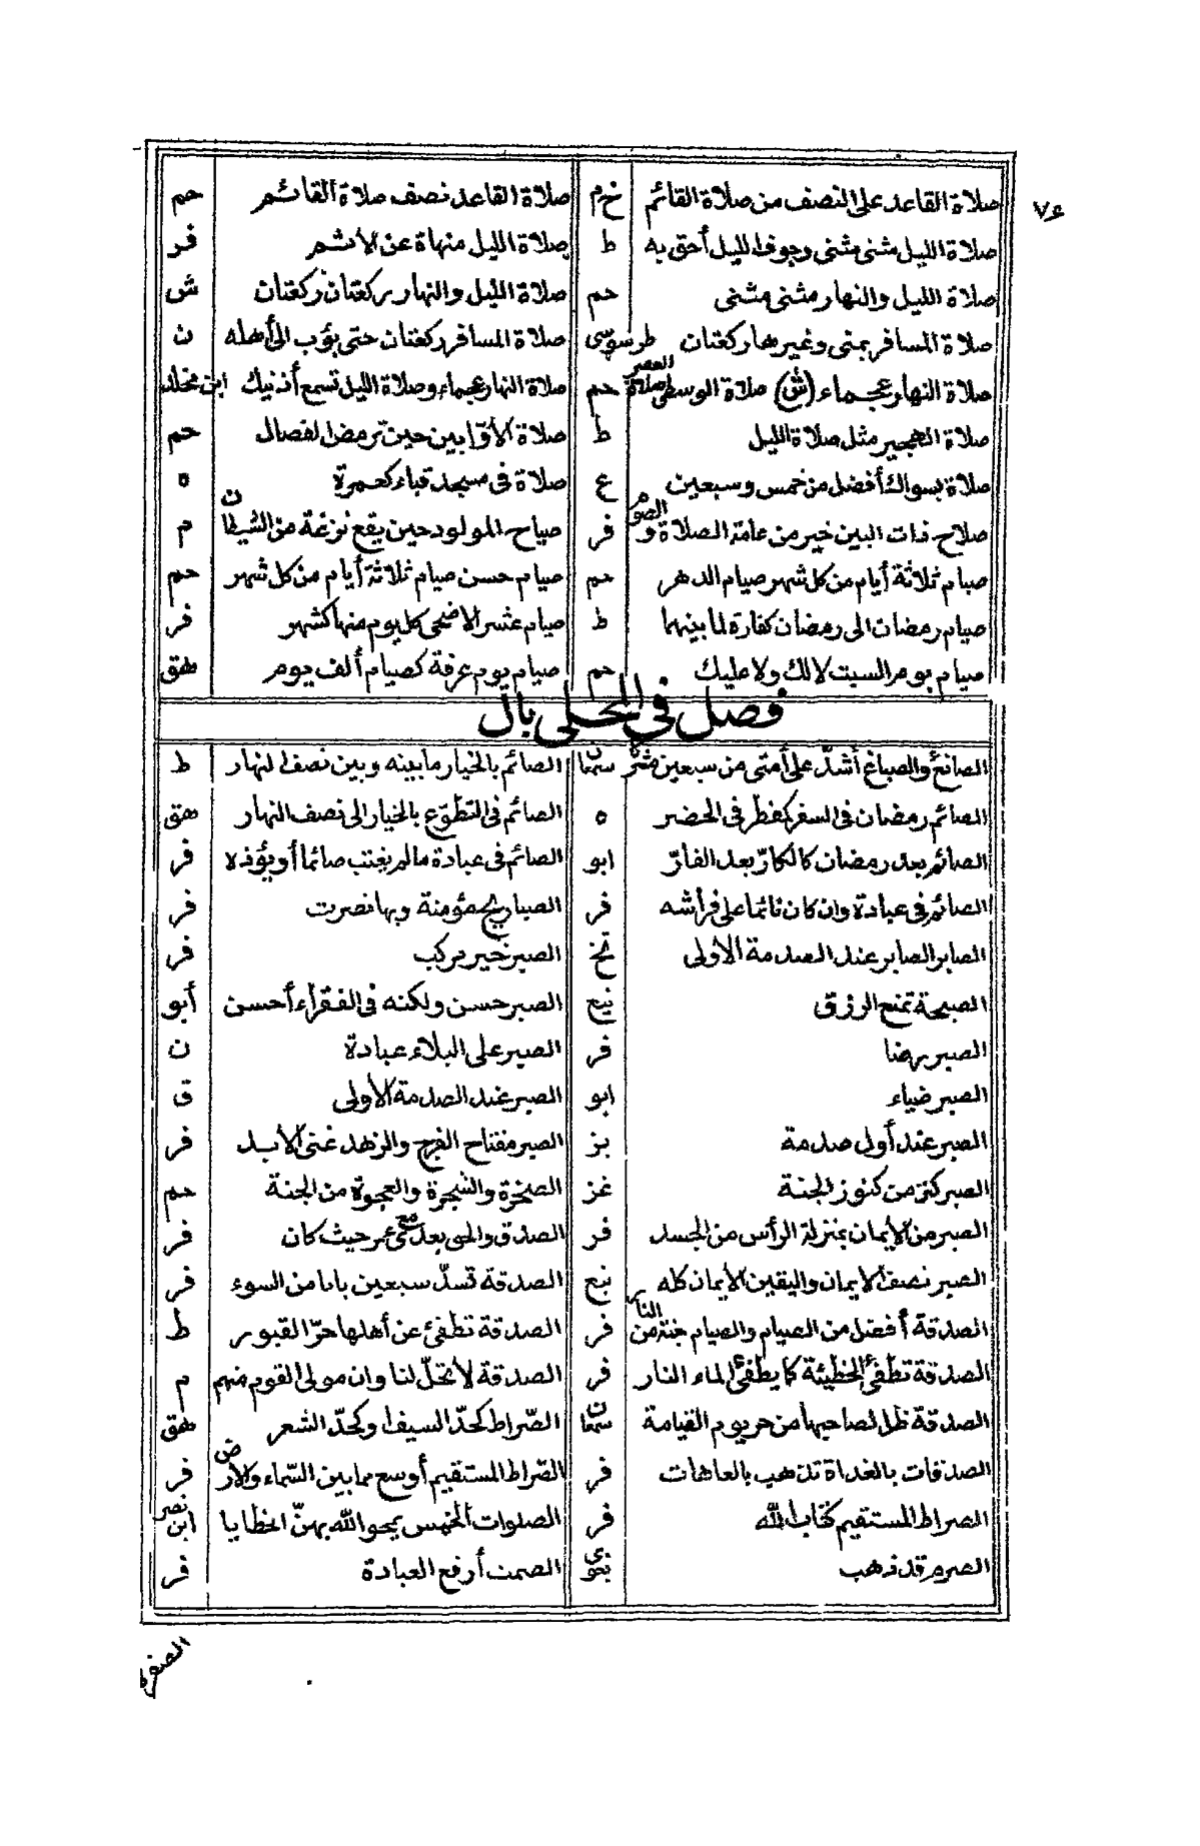 ٧٤
صلاة القاعد على النصف من صلاة القائم خ م صلاة القاعد نصف صلاة القائم حم
صلاة الليل مثنى مثنى وجوف الليل أحق به ط صلاة الليل منهاة عن الاثم فر
صلاة الليل والنهار مثنى مثنى حم صلاة الليل والنهار ركعتان ركعتان ش
صلاة المسافر بمنى وغيرها ركعتان طرسوسى صلاة المسافر ركعتان حتى يؤب الى أهله ن
صلاة النهار عجماء (ش) صلاة الوسطى صلاة العصر حم صلاة النهار عجماء وصلاة الليل تسمع أذنيك ابن مخلد
صلاة الهجير مثل صلاة الليل ط صلاة الأوّابين حين ترمض الفصال حم
صلاة بسواك أفضل من خمس وسبعين ع صلاة فى مسجد قباء كعمرة ه
صلاح ذات البين خير من عامة الصلاة والصوم فر صياح المولود حين يقع نزغة من الشيطان م
صيام ثلاثة أيام من كل شهر صيام الدهر حم صيام حسن صيام ثلاثة أيام من كل شهر حم
صيام رمضان الى رمضان كفارة لما بينهما ط صيام عشر الاضحى كل يوم منها كشهر فر
صيام يوم السبت لا لك ولا عليك حم صيام يوم عرفة كصيام ألف يوم هق
فصل فى المحلى بال
الصانع والصباغ أشدّ على أمتى من سبعين سمعان الصائم بالخيار ما بينه وبين نصف النهار ط
الصائم رمضان فى السفر كمفطر فى الحضر ه الصائم فى التطوّع بالخيار الى نصف النهار هق
الصائم بعد رمضان كالكارّ بعد الفارّ ابو الصائم فى عبادة مالم يغتب صائما أو يؤذه فر
الصائم فى عبادة وان كان نائما على فراشه فر الصبا ريح مؤمنة وبها نصرت فر
الصابر الصابر عند الصدمة الاولى تخ الصبر خير مركب فر
الصبحة تمنع الرزق الصبر حسن ولكنه فى الفقراء أحسن أبو
الصبر رضا فر الصبر على البلاء عبادة ن
الصبر ضياء ابو الصبر عند الصدمة الأولى ق
الصبر عند أولى صدمة بز الصبر مفتاح الفرج والزهد غنى الابد فر
الصبر كنز من كنوز الجنة غز الصخرة والشجرة والعجوة من الجنة حم
الصبر من الايمان بمنزلة الرأس من الجسد فر الصدق والحى بعدى مع عمر حيث كان فر
الصبر نصف الايمان واليقين الايمان كله الصدقة تسدّ سبعين بابا من السوء فر
الصدقة أفضل من الصيام والصيام جنة من النار فر الصدقة تطفئ عن أهلها حرّ القبور ط
الصدقة تطفئ الخطيئة كما يطفئ الماء النار فر الصدقة لا تحلّ لنا وان مولى القوم منهم م
الصدقة ظل لصاحبها من حر يوم القيامة سمعان الصّراط كحدّ السيف او كحدّ الشعر هق
الصدقات بالغداة تذهب بالعاهات فر الصّراط المستقيم أوسع مما بين السّماء والارض فر
الصراط المستقيم كتاب الله فر الصلوات الخمس يمحو الله بهنّ الخطايا ابن نصر
الصرم قد ذهب بغوى الصمت أرفع العبادة فر
الصفرة